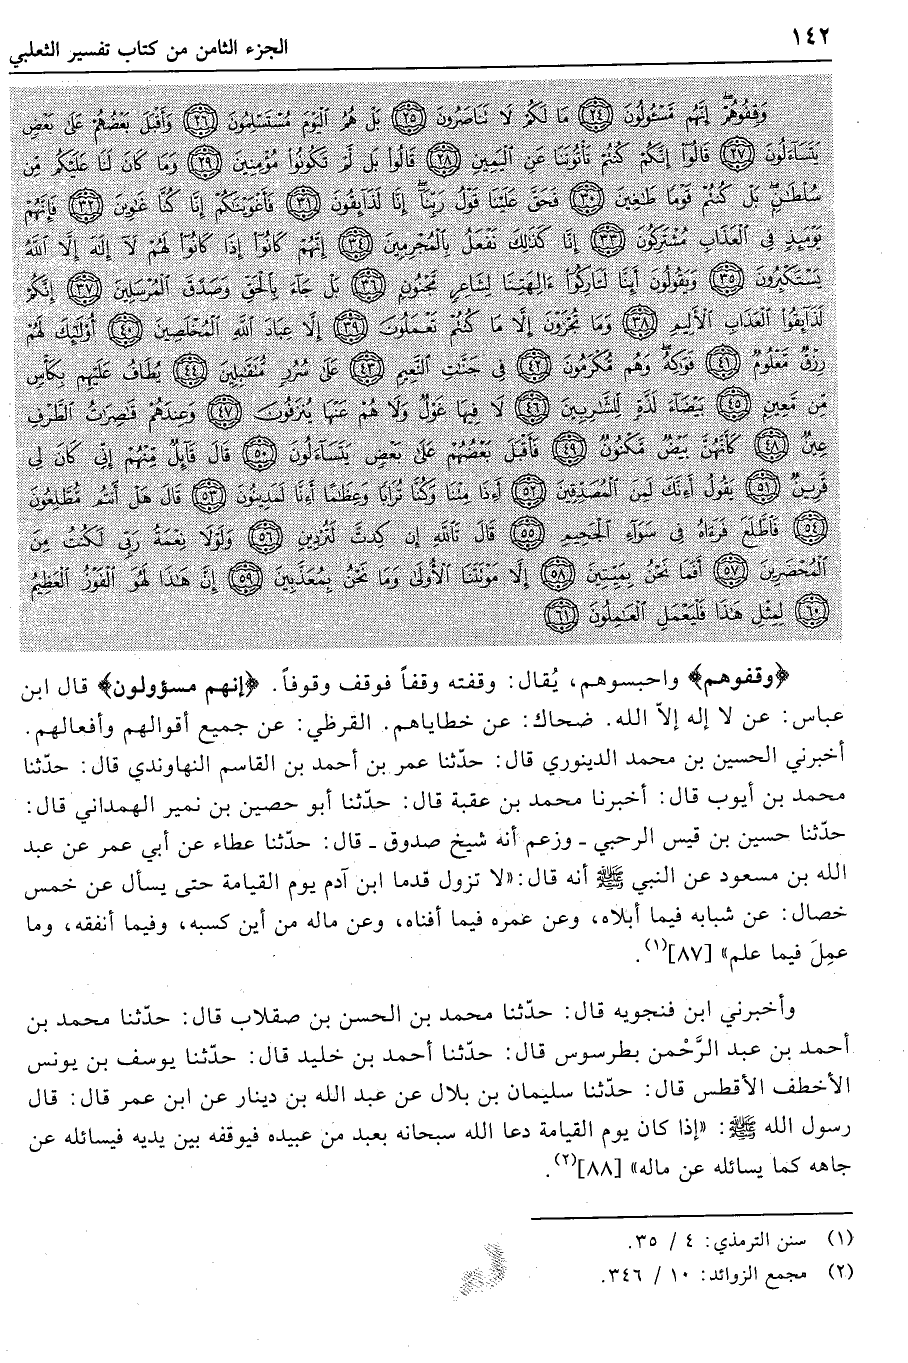 ١٤٢
الجزء الثامن من كتاب تفسير الثعلبي
وَقِفُوهُمْ ۖ إِنَّهُم مَّسْـُٔولُونَ ﴿٢٤﴾ مَا لَكُمْ لَا تَنَاصَرُونَ ﴿٢٥﴾ بَلْ هُمُ ٱلْيَوْمَ مُسْتَسْلِمُونَ ﴿٢٦﴾ وَأَقْبَلَ بَعْضُهُمْ عَلَىٰ بَعْضٍ
يَتَسَآءَلُونَ ﴿٢٧﴾ قَالُوٓا۟ إِنَّكُمْ كُنتُمْ تَأْتُونَنَا عَنِ ٱلْيَمِينِ ﴿٢٨﴾ قَالُوا۟ بَل لَّمْ تَكُونُوا۟ مُؤْمِنِينَ ﴿٢٩﴾ وَمَا كَانَ لَنَا عَلَيْكُم مِّن
سُلْطَـٰنٍۭ ۖ بَلْ كُنتُمْ قَوْمًا طَـٰغِينَ ﴿٣٠﴾ فَحَقَّ عَلَيْنَا قَوْلُ رَبِّنَآ ۖ إِنَّا لَذَآئِقُونَ ﴿٣١﴾ فَأَغْوَيْنَـٰكُمْ إِنَّا كُنَّا غَـٰوِينَ ﴿٣٢﴾ فَإِنَّهُمْ
يَوْمَئِذٍ فِى ٱلْعَذَابِ مُشْتَرِكُونَ ﴿٣٣﴾ إِنَّا كَذَٰلِكَ نَفْعَلُ بِٱلْمُجْرِمِينَ ﴿٣٤﴾ إِنَّهُمْ كَانُوٓا۟ إِذَا كَانُوٓا۟ لَهُمْ لَآ إِلَـٰهَ إِلَّا ٱللَّهُ
يَسْتَكْبِرُونَ ﴿٣٥﴾ وَيَقُولُونَ أَئِنَّا لَتَارِكُوٓا۟ ءَالِهَتِنَا لِشَاعِرٍ مَّجْنُونٍۭ ﴿٣٦﴾ بَلْ جَآءَ بِٱلْحَقِّ وَصَدَّقَ ٱلْمُرْسَلِينَ ﴿٣٧﴾ إِنَّكُمْ
لَذَآئِقُوا۟ ٱلْعَذَابِ ٱلْأَلِيمِ ﴿٣٨﴾ وَمَا تُجْزَوْنَ إِلَّا مَا كُنتُمْ تَعْمَلُونَ ﴿٣٩﴾ إِلَّا عِبَادَ ٱللَّهِ ٱلْمُخْلَصِينَ ﴿٤٠﴾ أُو۟لَـٰٓئِكَ لَهُمْ
رِزْقٌ مَّعْلُومٌ ﴿٤١﴾ فَوَٰكِهُ ۖ وَهُم مُّكْرَمُونَ ﴿٤٢﴾ فِى جَنَّـٰتِ ٱلنَّعِيمِ ﴿٤٣﴾ عَلَىٰ سُرُرٍ مُّتَقَـٰبِلِينَ ﴿٤٤﴾ يُطَافُ عَلَيْهِم بِكَأْسٍ
مِّن مَّعِينٍۭ ﴿٤٥﴾ بَيْضَآءَ لَذَّةٍ لِّلشَّـٰرِبِينَ ﴿٤٦﴾ لَا فِيهَا غَوْلٌ وَلَا هُمْ عَنْهَا يُنزَفُونَ ﴿٤٧﴾ وَعِندَهُمْ قَـٰصِرَٰتُ ٱلطَّرْفِ
عِينٌ ﴿٤٨﴾ كَأَنَّهُنَّ بَيْضٌ مَّكْنُونٌ ﴿٤٩﴾ فَأَقْبَلَ بَعْضُهُمْ عَلَىٰ بَعْضٍ يَتَسَآءَلُونَ ﴿٥٠﴾ قَالَ قَآئِلٌ مِّنْهُمْ إِنِّى كَانَ لِى
قَرِينٌ ﴿٥١﴾ يَقُولُ أَءِنَّكَ لَمِنَ ٱلْمُصَدِّقِينَ ﴿٥٢﴾ أَءِذَا مِتْنَا وَكُنَّا تُرَابًا وَعِظَـٰمًا أَءِنَّا لَمَدِينُونَ ﴿٥٣﴾ قَالَ هَلْ أَنتُم مُّطَّلِعُونَ
﴿٥٤﴾ فَٱطَّلَعَ فَرَءَاهُ فِى سَوَآءِ ٱلْجَحِيمِ ﴿٥٥﴾ قَالَ تَٱللَّهِ إِن كِدتَّ لَتُرْدِينِ ﴿٥٦﴾ وَلَوْلَا نِعْمَةُ رَبِّى لَكُنتُ مِنَ
ٱلْمُحْضَرِينَ ﴿٥٧﴾ أَفَمَا نَحْنُ بِمَيِّتِينَ ﴿٥٨﴾ إِلَّا مَوْتَتَنَا ٱلْأُولَىٰ وَمَا نَحْنُ بِمُعَذَّبِينَ ﴿٥٩﴾ إِنَّ هَـٰذَا لَهُوَ ٱلْفَوْزُ ٱلْعَظِيمُ
﴿٦٠﴾ لِمِثْلِ هَـٰذَا فَلْيَعْمَلِ ٱلْعَـٰمِلُونَ ﴿٦١﴾
﴿وقفوهم﴾ واحبسوهم، يُقال: وقفته وقفاً فوقف وقوفاً. ﴿إنهم مسؤولون﴾ قال ابن
عباس: عن لا إله إلاّ الله. ضحاك: عن خطاياهم. القرظي: عن جميع أقوالهم وأفعالهم.
أخبرني الحسين بن محمد الدينوري قال: حدّثنا عمر بن أحمد بن القاسم النهاوندي قال: حدّثنا
محمد بن أيوب قال: أخبرنا محمد بن عقبة قال: حدّثنا أبو حصين بن نمير الهمداني قال:
حدّثنا حسين بن قيس الرحبي ـ وزعم أنه شيخ صدوق ـ قال: حدّثنا عطاء عن أبي عمر عن عبد
الله بن مسعود عن النبي ﷺ أنه قال:«لا تزول قدما ابن آدم يوم القيامة حتى يسأل عن خمس
خصال: عن شبابه فيما أبلاه، وعن عمره فيما أفناه، وعن ماله من أين كسبه، وفيما أنفقه، وما
عمِلَ فيما علم» [٨٧](١).
وأخبرني ابن فنجويه قال: حدّثنا محمد بن الحسن بن صقلاب قال: حدّثنا محمد بن
أحمد بن عبد الرَّحْمن بطرسوس قال: حدّثنا أحمد بن خليد قال: حدّثنا يوسف بن يونس
الأخطف الأقطس قال: حدّثنا سليمان بن بلال عن عبد الله بن دينار عن ابن عمر قال: قال
رسول الله ﷺ: «إذا كان يوم القيامة دعا الله سبحانه بعبد من عبيده فيوقفه بين يديه فيسائله عن
جاهه كما يسائله عن ماله» [٨٨](٢).
(١) سنن الترمذي: ٤ / ٣٥.
(٢) مجمع الزوائد: ١٠ / ٣٤٦.